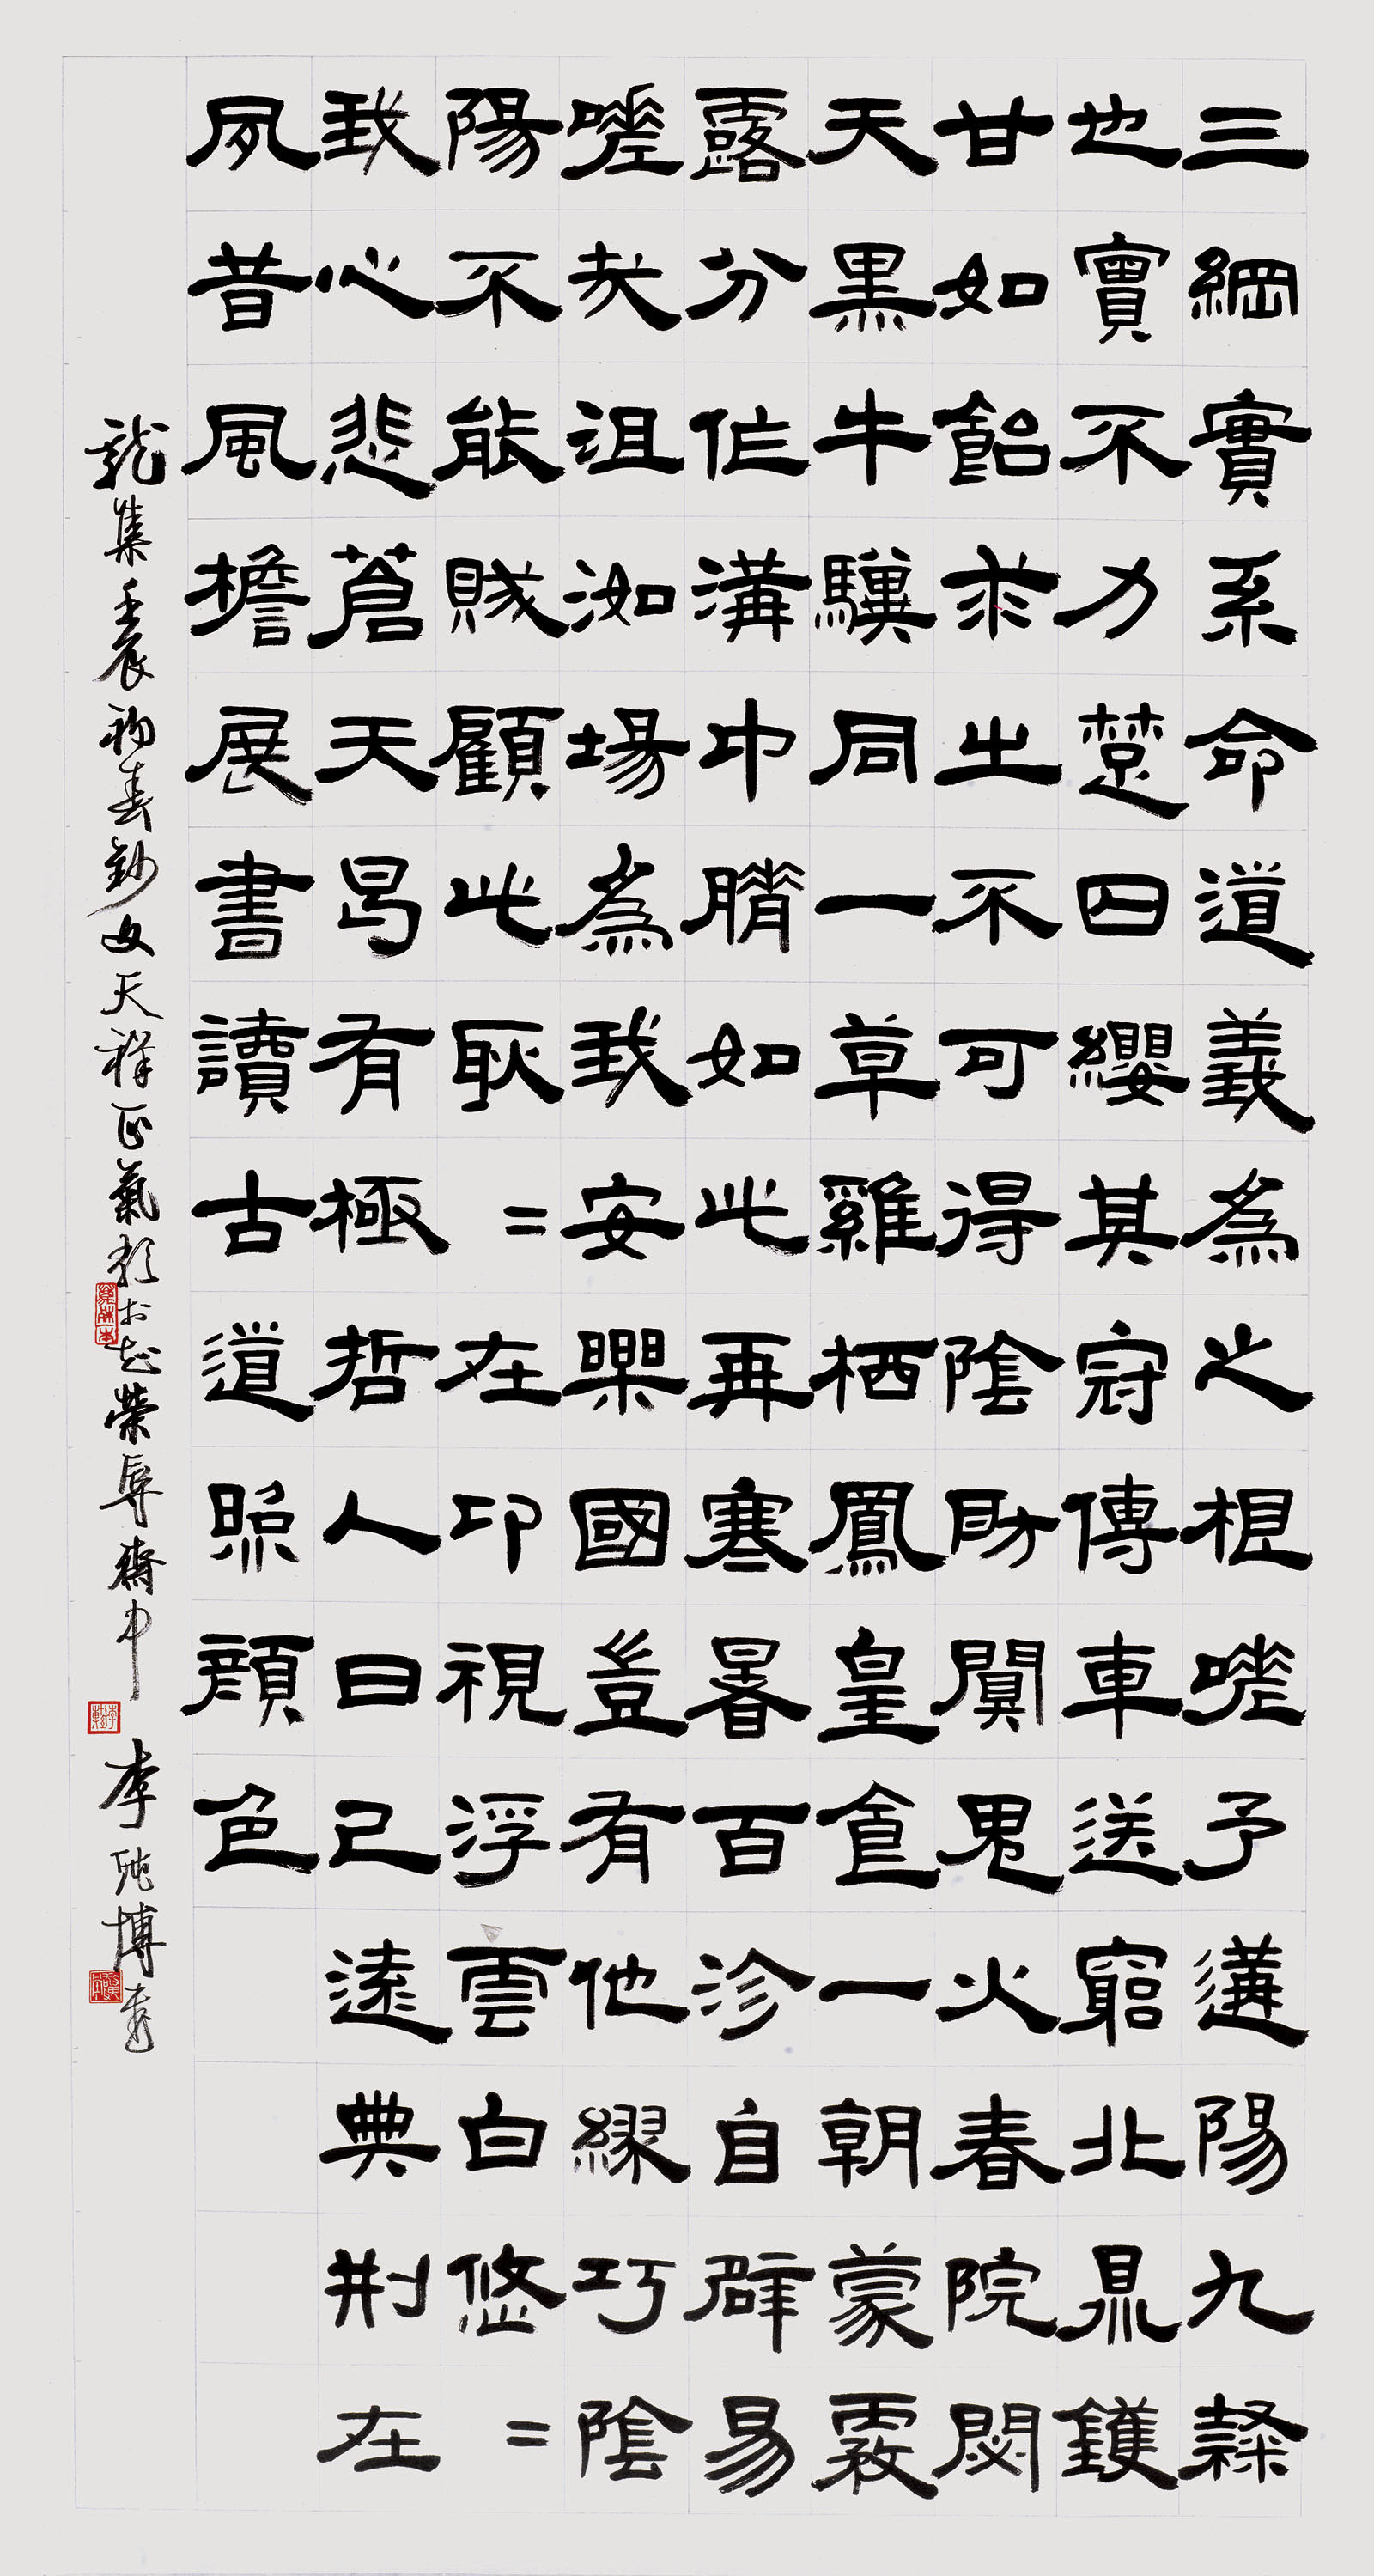 三綱實系命道義為之根嗟予遘陽九隸
也實不力楚囚纓其冠傳車送窮北鼎鑊
甘如飴求之不可得陰房闃鬼火春院閟
天黑牛驥同一草雞栖鳳皇食一朝蒙霧
露分作溝中膌如此再寒暑百沴自辟易
嗟哉沮洳場為我安樂國豈有他繆巧陰
陽不能賊顧此耿=在卬視浮雲白悠=
我心悲蒼天曷有極哲人日已遠典刑在
夙昔風檐展書讀古道照顏色
龍集壬辰初春鈔文天祥正氣歌於榮辱齋中 李純博書